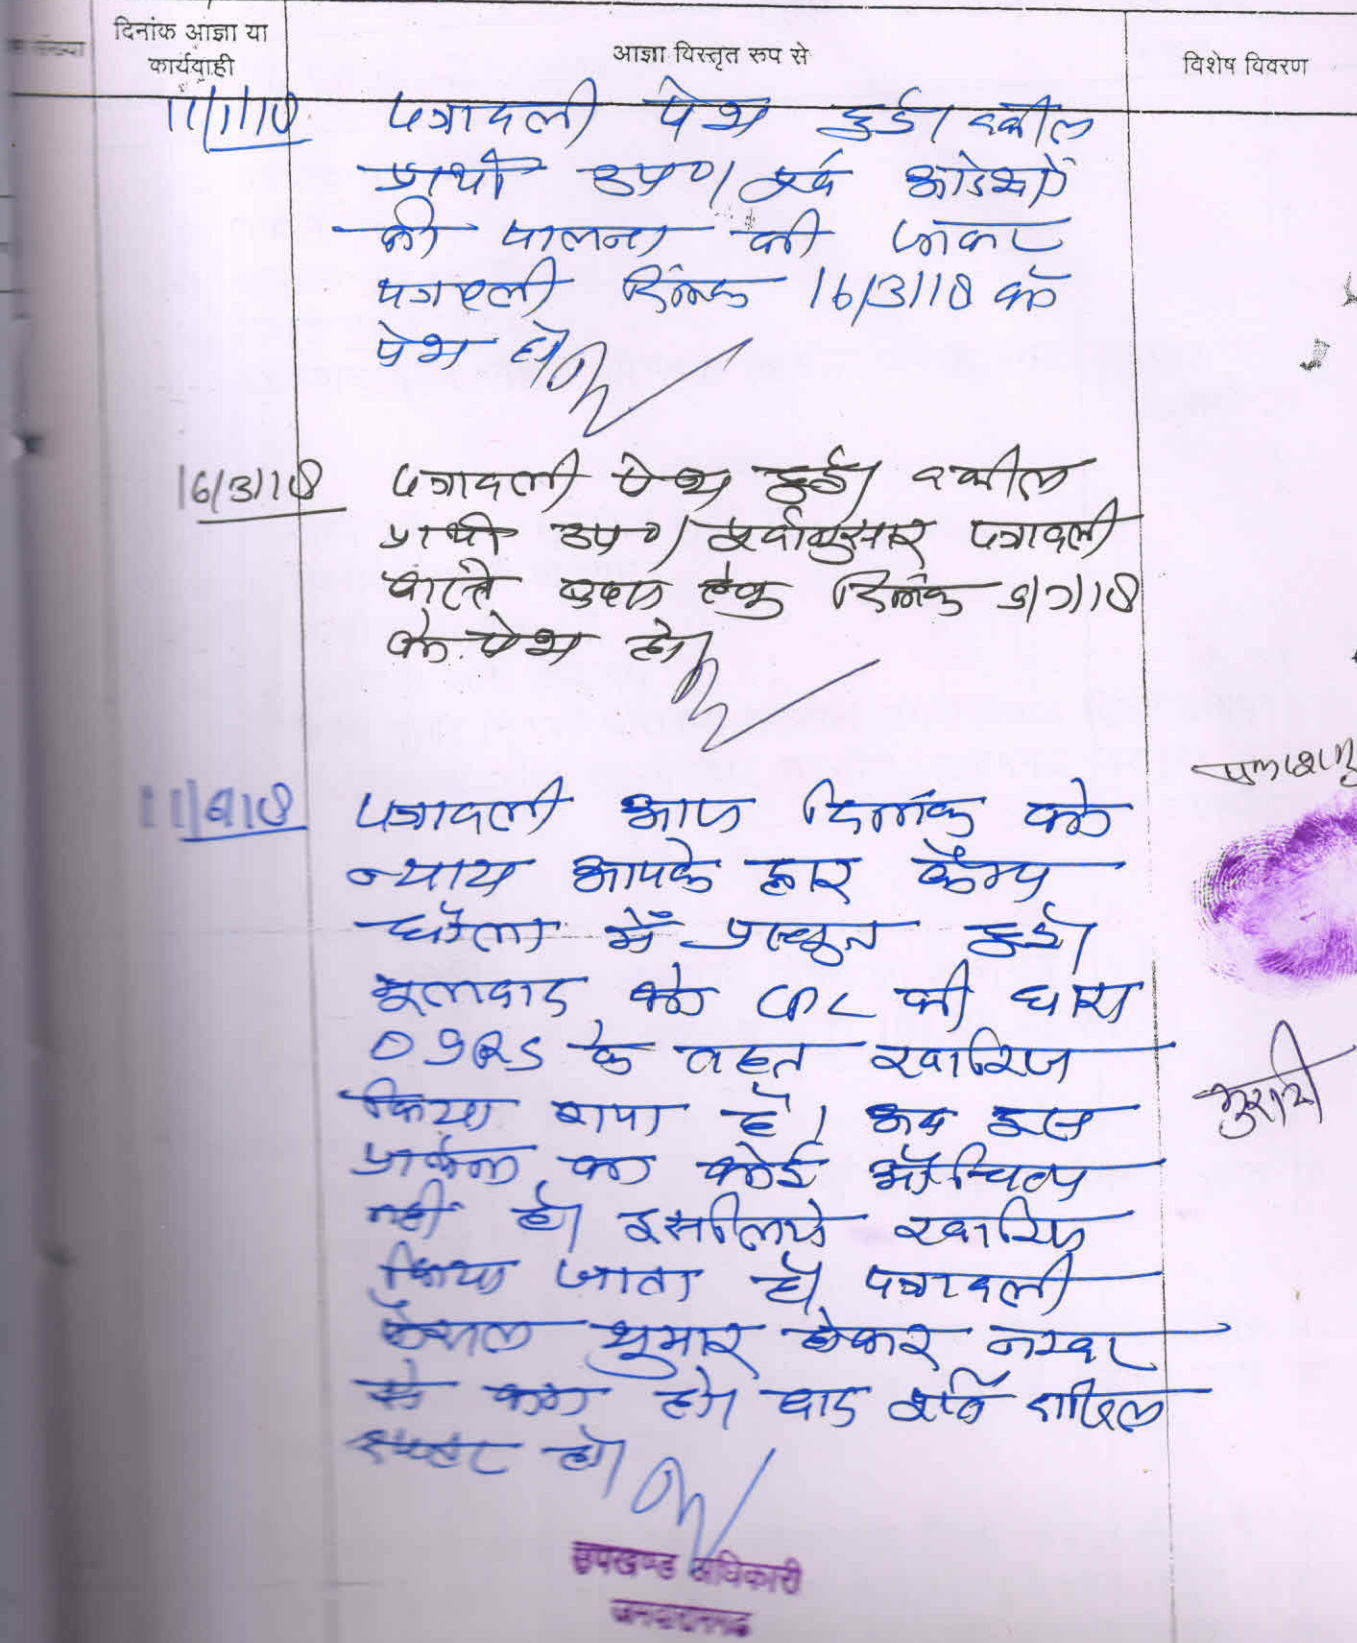 दिनांक आज्ञा या
कार्यवाही
आज्ञा विस्तृत रूप से
विशेष विवरण
11/1/18 पत्रावली पेश हुई। वकील
प्रार्थी उप०। पूर्व आदेशों
की पालना की जाकर
पत्रावली दिनांक 16/3/18 को
पेश हो।
16/3/18 पत्रावली पेश हुई। वकील
प्रार्थी उप०। पूर्वानुसार पत्रावली
वास्ते बहस हेतु दिनांक 5/7/18
को पेश हो।
पत्रावली आज दिनांक को
न्याय आपके द्वार कैम्प
घौला में प्रस्तुत हुई।
मूलवाद को CPC की धारा
O9R5 के तहत खारिज
किया गया है। अब इस
प्रार्थना का कोई औचित्य
नहीं है। इसलिये खारिज
किया जाता है। पत्रावली
फैसल शुमार होकर नम्बर
से कम हो। बाद पूर्ति दाखिल
दफ्तर हो।
उपखण्ड अधिकारी